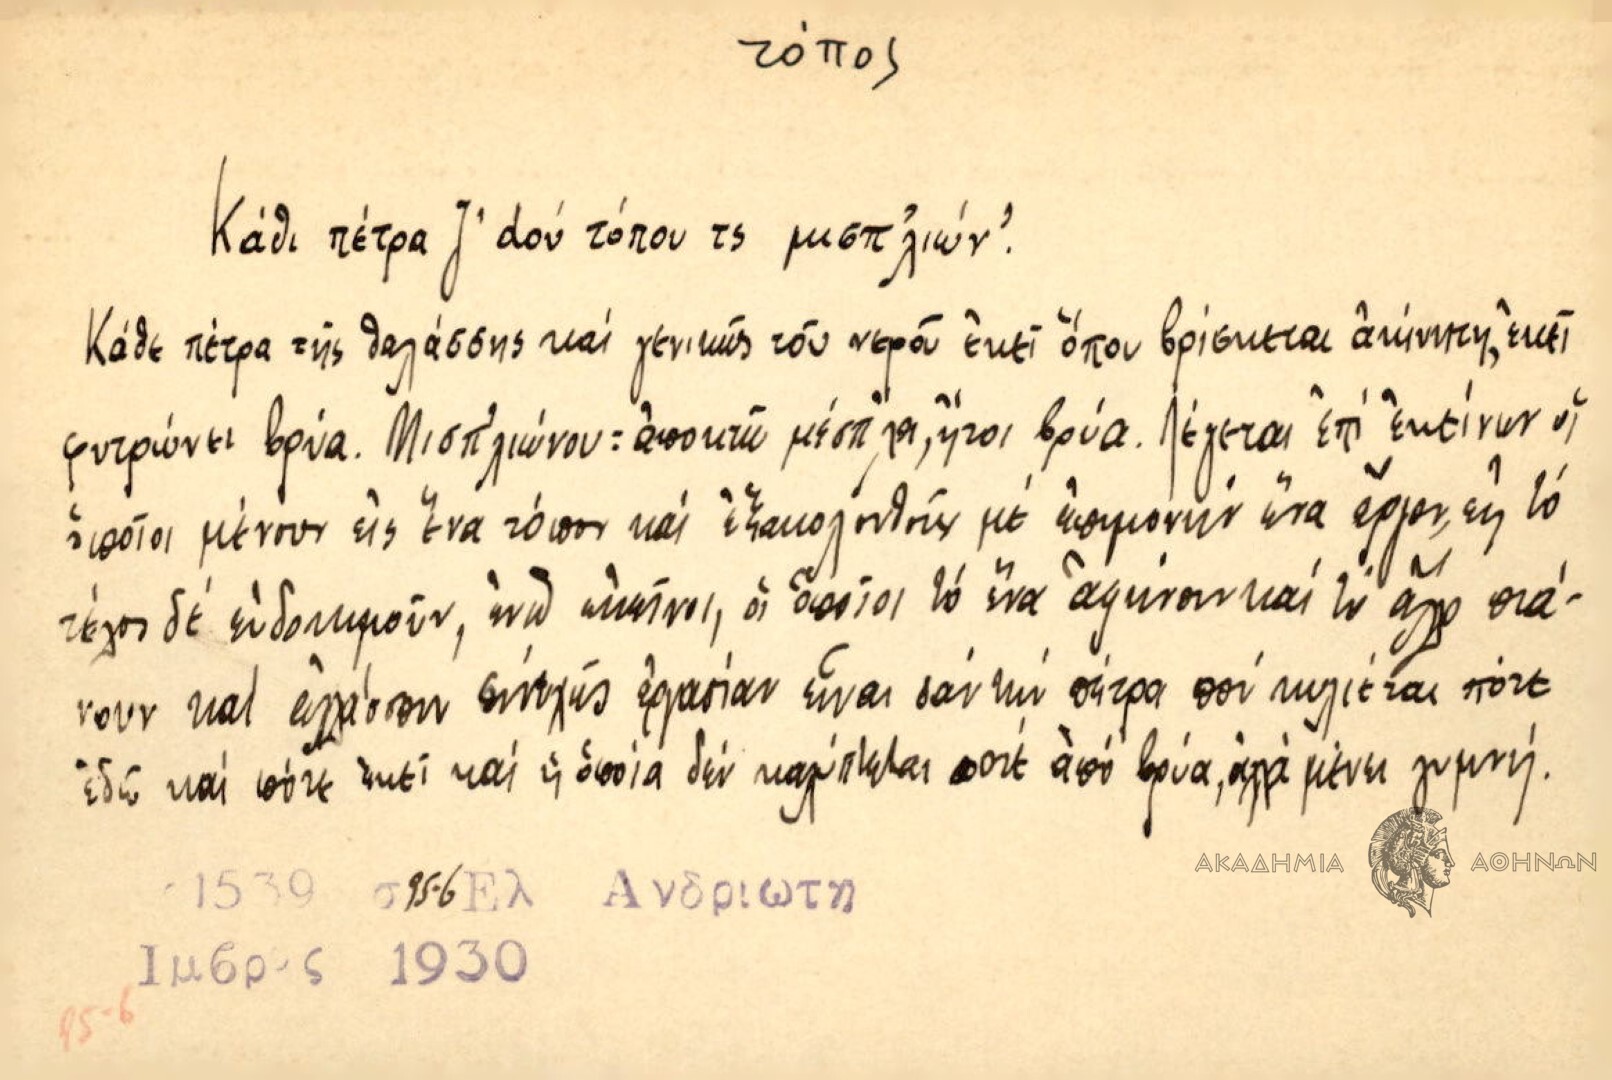 τόπος
Κάθι πέτρα ζ' dού τόπου τς μισπ'λιών'.
Κάθε πέτρα τῆς θαλάσσης καί γενικῶς τοῦ νεροῦ ἐκεῖ ὅπου βρίσκεται ἀκίνητη, ἐκεῖ
φυτρώνει βρύα. Μισπ'λιώνου: ἀποκτῶ μέσπ'λα, ἤτοι βρύα. Λέγεται ἐπί ἐκείνων οἱ
ὁποῖοι μένουν εἰς ἕνα τόπον καί ἐξακολουθοῦν μέ ἐπιμονήν ἕνα ἔργον, εἰς τό
τέλος δέ εὐδοκιμοῦν, ἐνῶ ἐκεῖνοι, οἱ ὁποῖοι τό ἕνα ἀφίνουν καί τό ἄλλο πιά-
νουν καί ἀλλάσσουν συνεχῶς ἐργασίαν εἶναι σάν τήν πέτρα πού κυλιέται πότε
ἐδῶ καί πότε ἐκεῖ καί ἡ ὁποία δέν καλύπτεται ποτέ ἀπό βρύα, ἀλλά μένει γυμνή.
1539 σ 95-6 Ελ Ανδριωτη
Ιμβρος 1930
95-6
ΑΚΑΔΗΜΙΑ ΑΘΗΝΩΝ